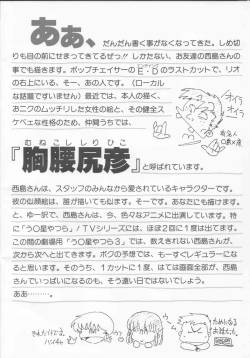 ああ、だんだん書く事がなくなってきた。しめ切
りも目の前にせまってきてるぜっ!! しかたない、お友達の西島さんの
事でも描きます。ポップチェイサーのE・Dのラストカットで、リオ
の右上にいる、そー、あの人です。(ローカル
な話題ですいません) 最近では、本人の描く、
おニクのムッチリした女性の絵と、その健全ス
ケベェな性格のため、仲間うちでは、
むねこししりひこ
『胸腰尻彦』と呼ばれています。
西島さんは、スタッフのみんなから愛されているキャラクターです。
彼の似顔絵は、誰が描いても似ます。そーです。あなたにも描けます。
と、ゆー訳で、西島さんは、今、色々なアニメに出演しています。特
に「う○星やつら」TVシリーズには、ほぼ2回に1度は出てます。
この間の劇場用「う○星やつら3」では、数えきれない西島さんが、
次から次へと出てきます。ボクの予想では、もーすぐレギュラーにな
ると思います。そのうち、1カットに1度、はては画面全部が、西島
さんでいっぱいになるのも、そう遠い日ではないでしょう。
ああ……。
オイラ
オイラ